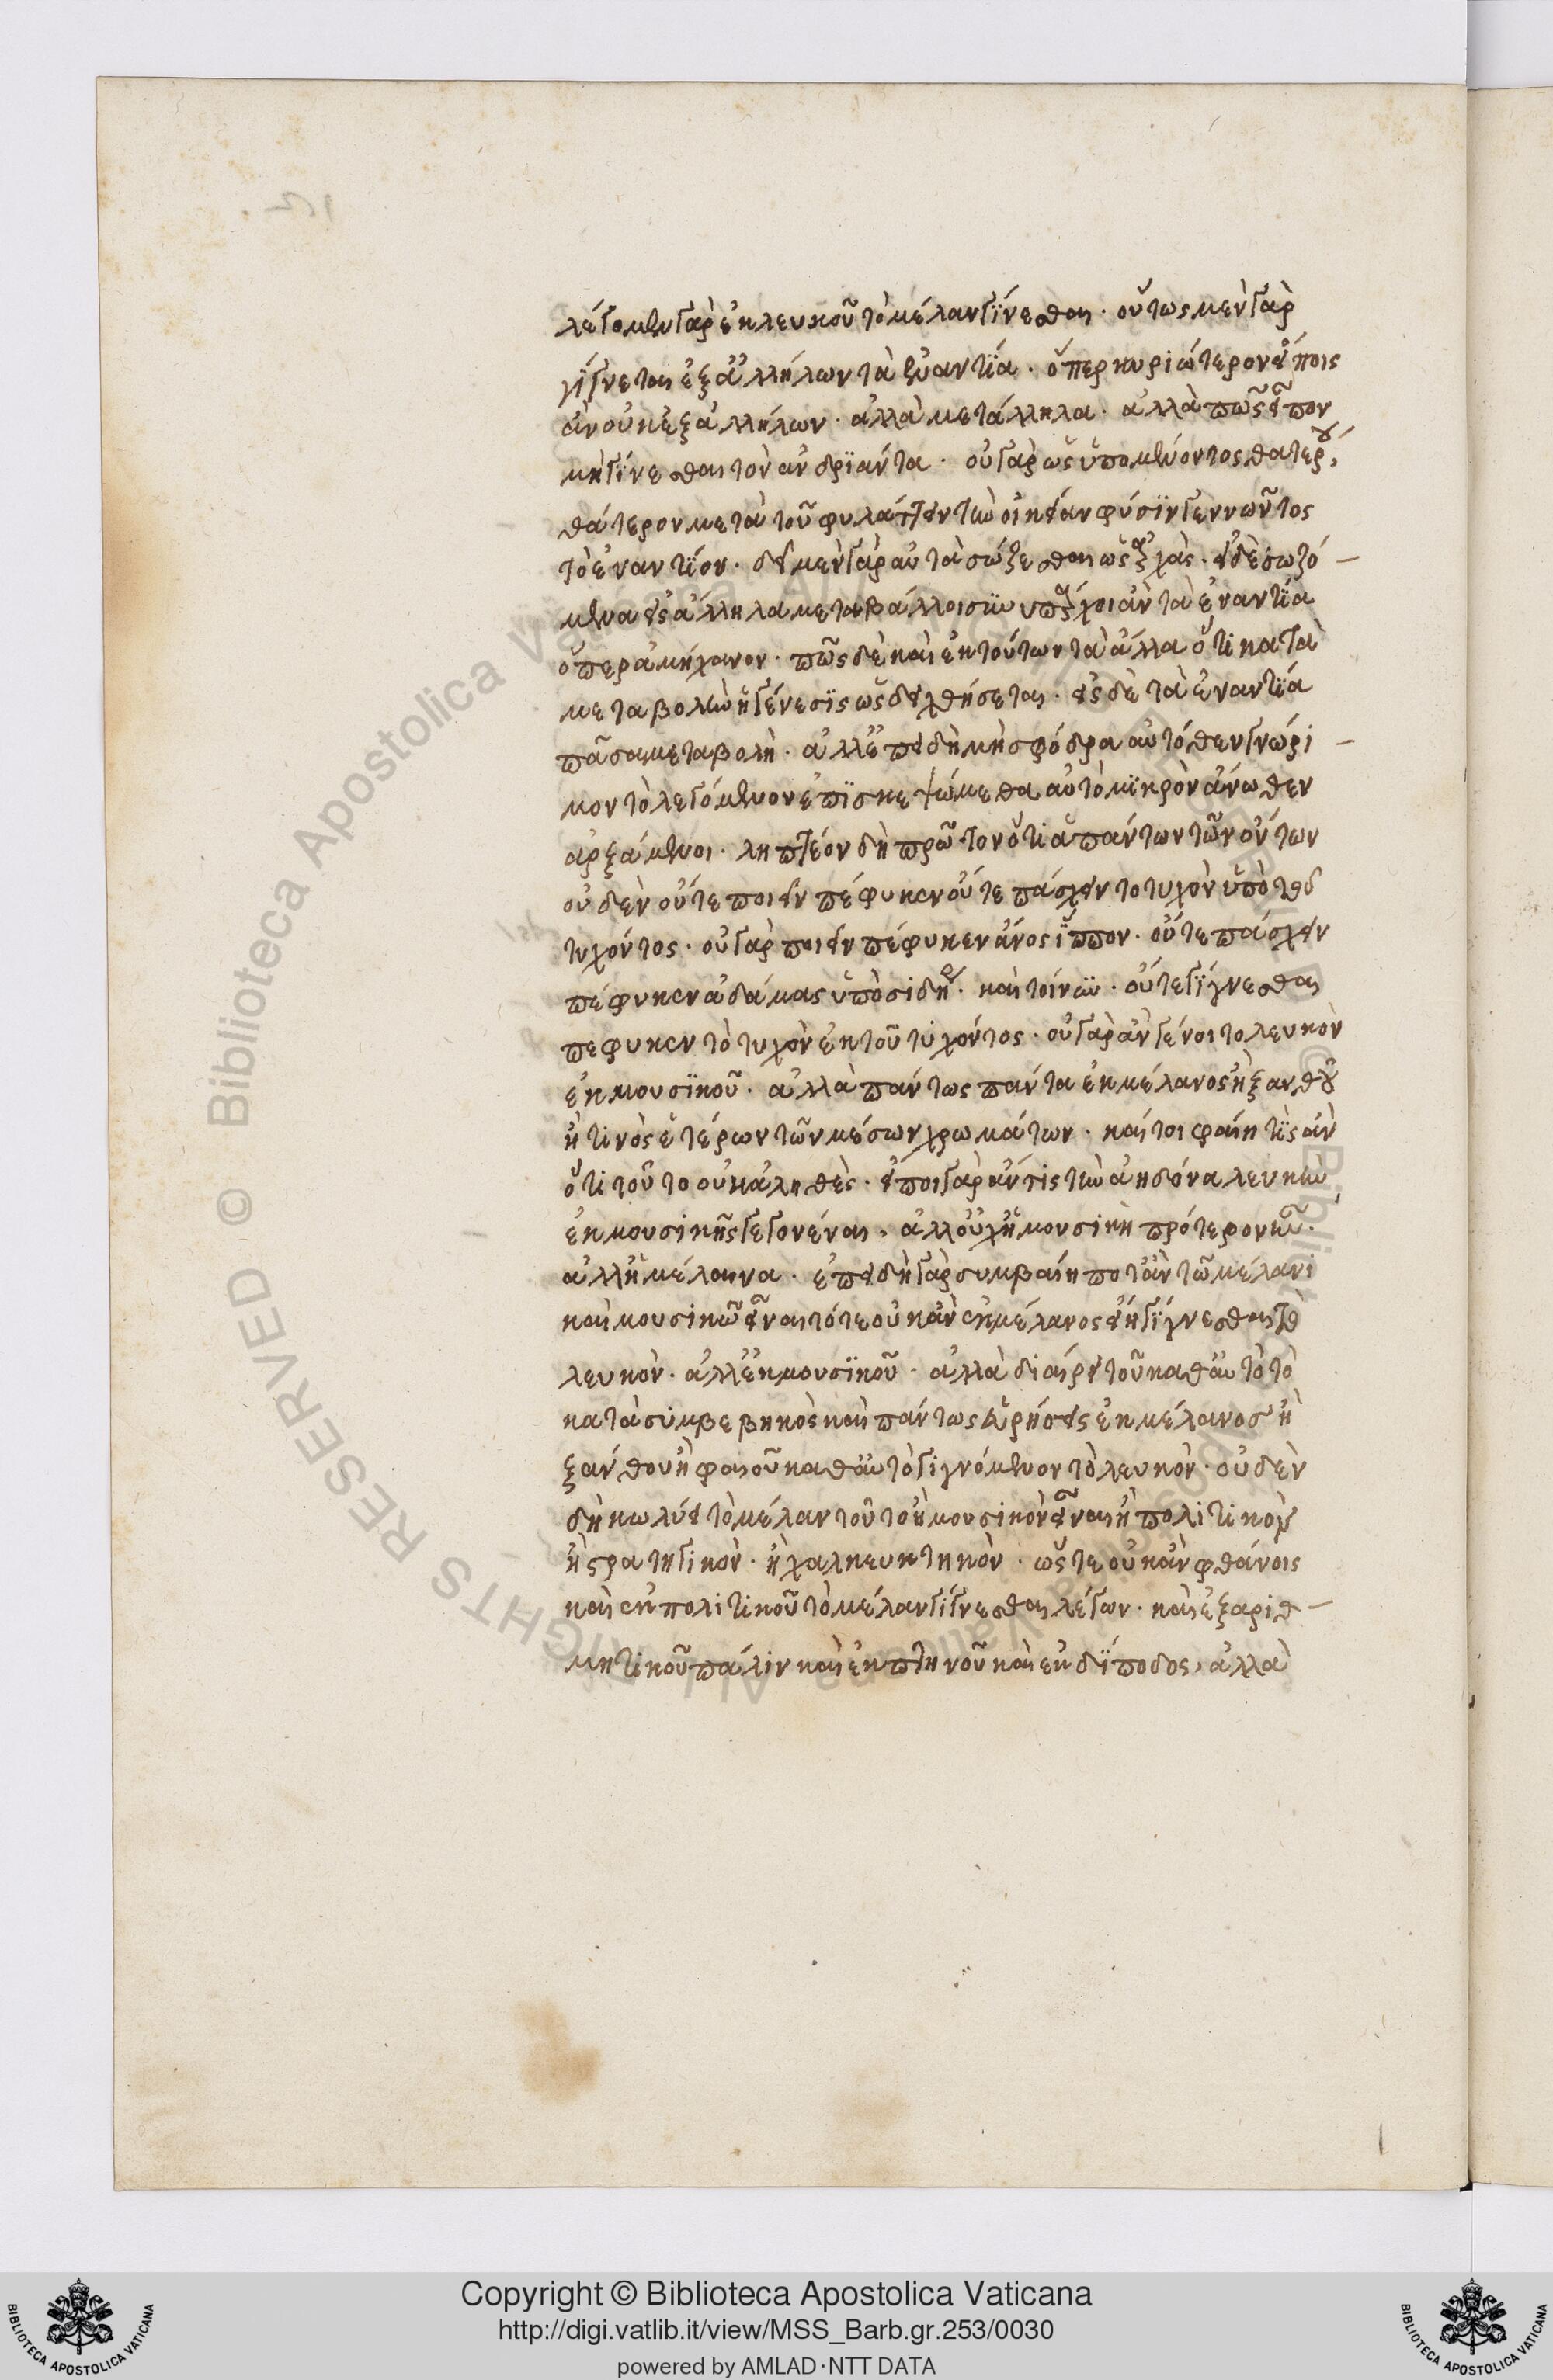 λέγομεν γὰρ ἐκ λευκοῦ τὸ μέλαν γίνεσθαι · οὕτως μὲν γὰρ
γίγνεται ἐξ ἀλλήλων τὰ ἐναντία · ὅπερ κυριώτερον εἴποις
ἂν οὐκ ἐξ ἀλλήλων · ἀλλὰ μετάλληλα · ἀλλὰ πῶς εἶπον
μὴ γίνεσθαι τὸν ἀνδριάντα · οὐ γὰρ ὡς ὑπομένοντος θατέρου,
θάτερον μετὰ τοῦ φυλάττειν τὴν οἰκείαν φύσιν γεννῶντος
τὸ ἐναντίον · δεῖ μὲν γὰρ αὐτὰ σώζεσθαι ὡς ἀρχὰς · εἰ δὲ σωζό–
μενα εἰς ἄλληλα μεταβάλλοισιν ὑπάρχοι ἂν τὰ ἐναντία
ὅπερ ἀμήχανον · πῶς δὲ καὶ ἐκ τούτων τὰ ἄλλα ὅτι κατὰ
μεταβολὴν ἡ γένεσις ὡς δειχθήσεται · εἰς δὲ τὰ ἐναντία
πᾶσα μεταβολὴ · ἀλλ' ἐπειδὴ μὴ σφόδρα αὐτόθεν γνώρι–
μον τὸ λεγόμενον ἐπισκεψώμεθα αὐτὸ μικρὸν ἄνωθεν
ἀρξάμενοι · ληπτέον δὴ πρῶτον ὅτι ἁπάντων τῶν ὄντων
οὐδὲν οὔτε ποιεῖν πέφυκεν οὔτε πάσχειν τὸ τυχὸν ὑπὸ τοῦ
τυχόντος · οὐ γὰρ ποιεῖν πέφυκεν ἄνος ἵππον · οὔτε πάσχειν
πέφυκεν ἀδάμας ὑπὸ σιδήρου · καὶ τοίνυν · οὔτε γίγνεσθαι
πέφυκεν τὸ τυχὸν ἐκ τοῦ τυχόντος · οὐ γὰρ ἂν γένοιτο λευκὸν
ἐκ μουσικοῦ · ἀλλὰ πάντως πάντα ἐκ μέλανος ἢ ξανθοῦ
ἤ τινος ἑτέρων τῶν μέσων χρωμάτων · καίτοι φαίη τὶς ἂν
ὅτι τοῦτο οὐκ ἀληθὲς · εἴποι γὰρ ἄν τις τὴν ἀηδόνα λευκὴν
ἐκ μουσικῆς γεγονέναι, ἀλλ' οὐχ ἡ μουσικὴ πρότερον ἦν ·
ἀλλ' ἡ μέλαινα · ἐπειδὴ γὰρ συμβαίη ποτ' ἂν τῶ μέλανι
καὶ μουσικῶ εἶναι τότε οὐκ ἂν ἐκ μέλανος εἴη γίγνεσθαι τὸ
λευκὸν · ἀλλ' ἐκ μουσικοῦ · ἀλλὰ διαίρει τοῦ καθ' αὑτὸ τὸ
κατὰ συμβεβηκὸς καὶ πάντως εὑρήσεις ἐκ μέλανος ἢ
ξανθοῦ ἢ φαιοῦ καθ' αὑτὸ γιγνόμενον τὸ λευκὸν · οὐδὲν
δὴ κωλύει τὸ μέλαν τοῦτο ἢ μουσικὸν εἶναι ἢ πολιτικὸν
ἢ στρατηγικὸν · ἢ χαλκευκτικὸν · ὥστε οὐκ ἂν φθάνοις
καὶ ἐκ πολιτικοῦ τὸ μέλαν γίγνεσθαι λέγων · καὶ ἐξ ἀριθ–
μητικοῦ πάλιν καὶ ἐκ πτηνοῦ καὶ ἐκ δίποδος, ἀλλὰ
Copyright © Biblioteca Apostolica Vaticana
http://digi.vatlib.it/view/MSS_Barb.gr.253/0030
powered by AMLAD·NTT DATA